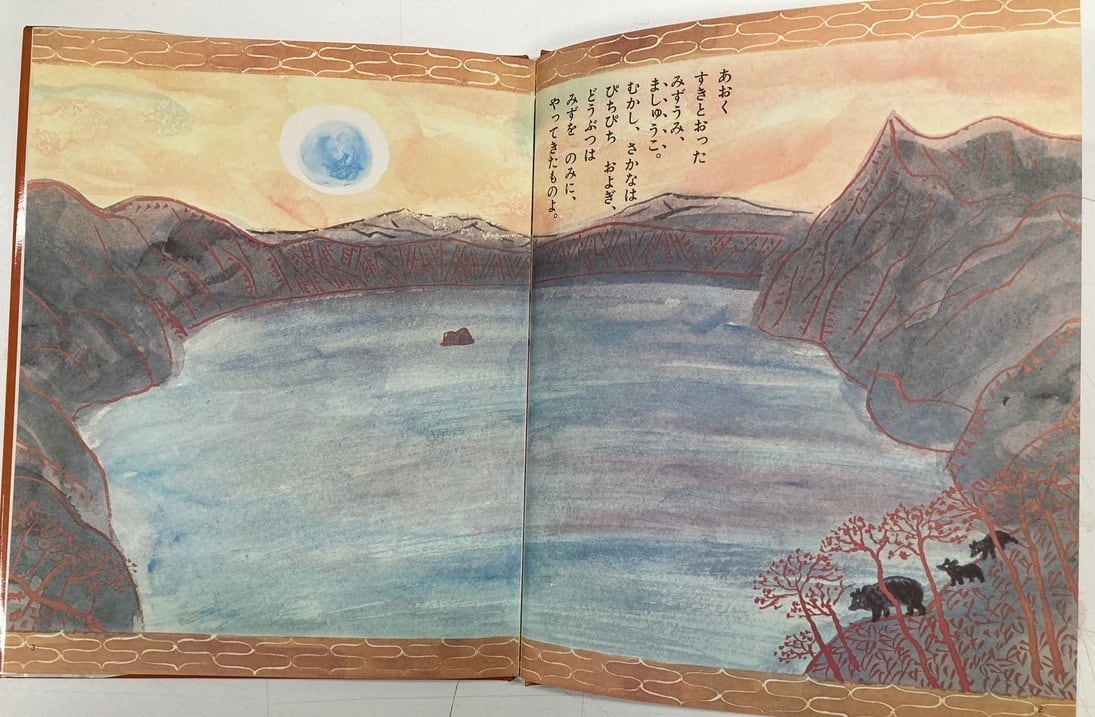 あおく
すきとおった
みずうみ、
ましゅうこ。
むかし、さかなは
ぴちぴち　およぎ、
どうぶつは
みずを　のみに、
やってきたものよ。
3
2